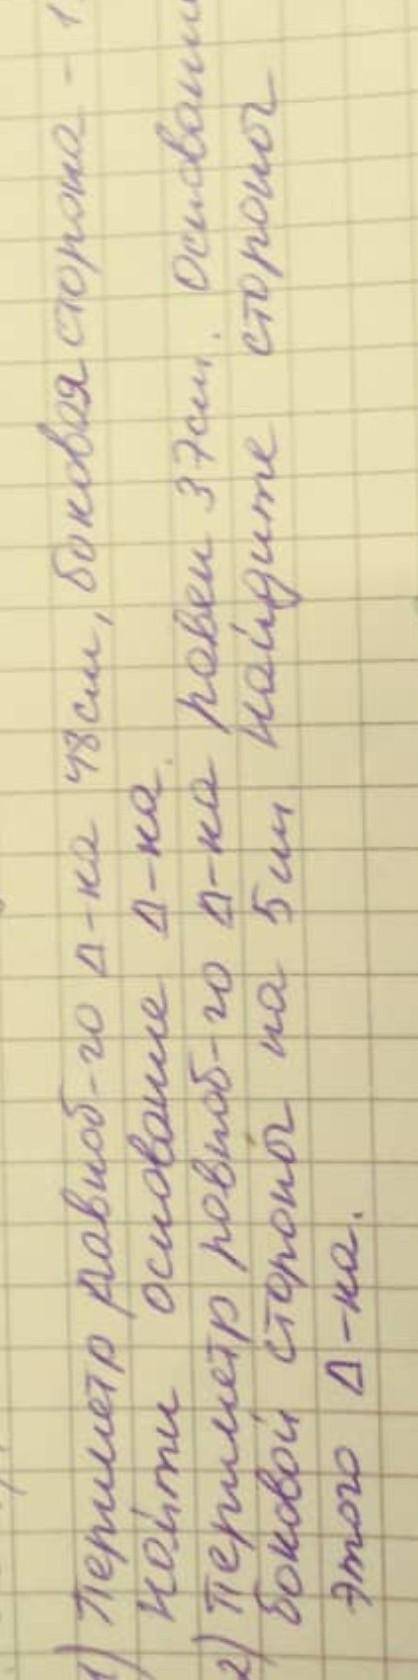 1) Периметр равноб-го Δ-ка 48см, боковая сторона - 1
найти основание Δ-ка.
2) Периметр равноб-го Δ-ка равен 37см. Основани
боковой стороны на 5см найдите стороны
этого Δ-ка.